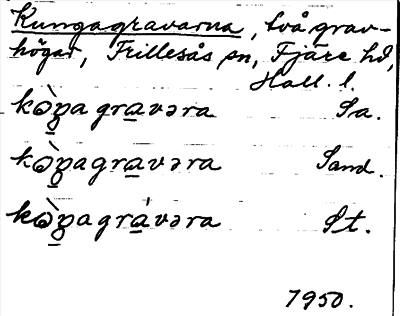 Kungagravarna, två grav-
högar, Frillesås sn, Fjäre hd,
Hall. l.
kò̱ŋa gra̱vəra Sa.
kò̱ŋagra̱vəra Sand.
kò̱ŋagrá̱vəra St.
1950.